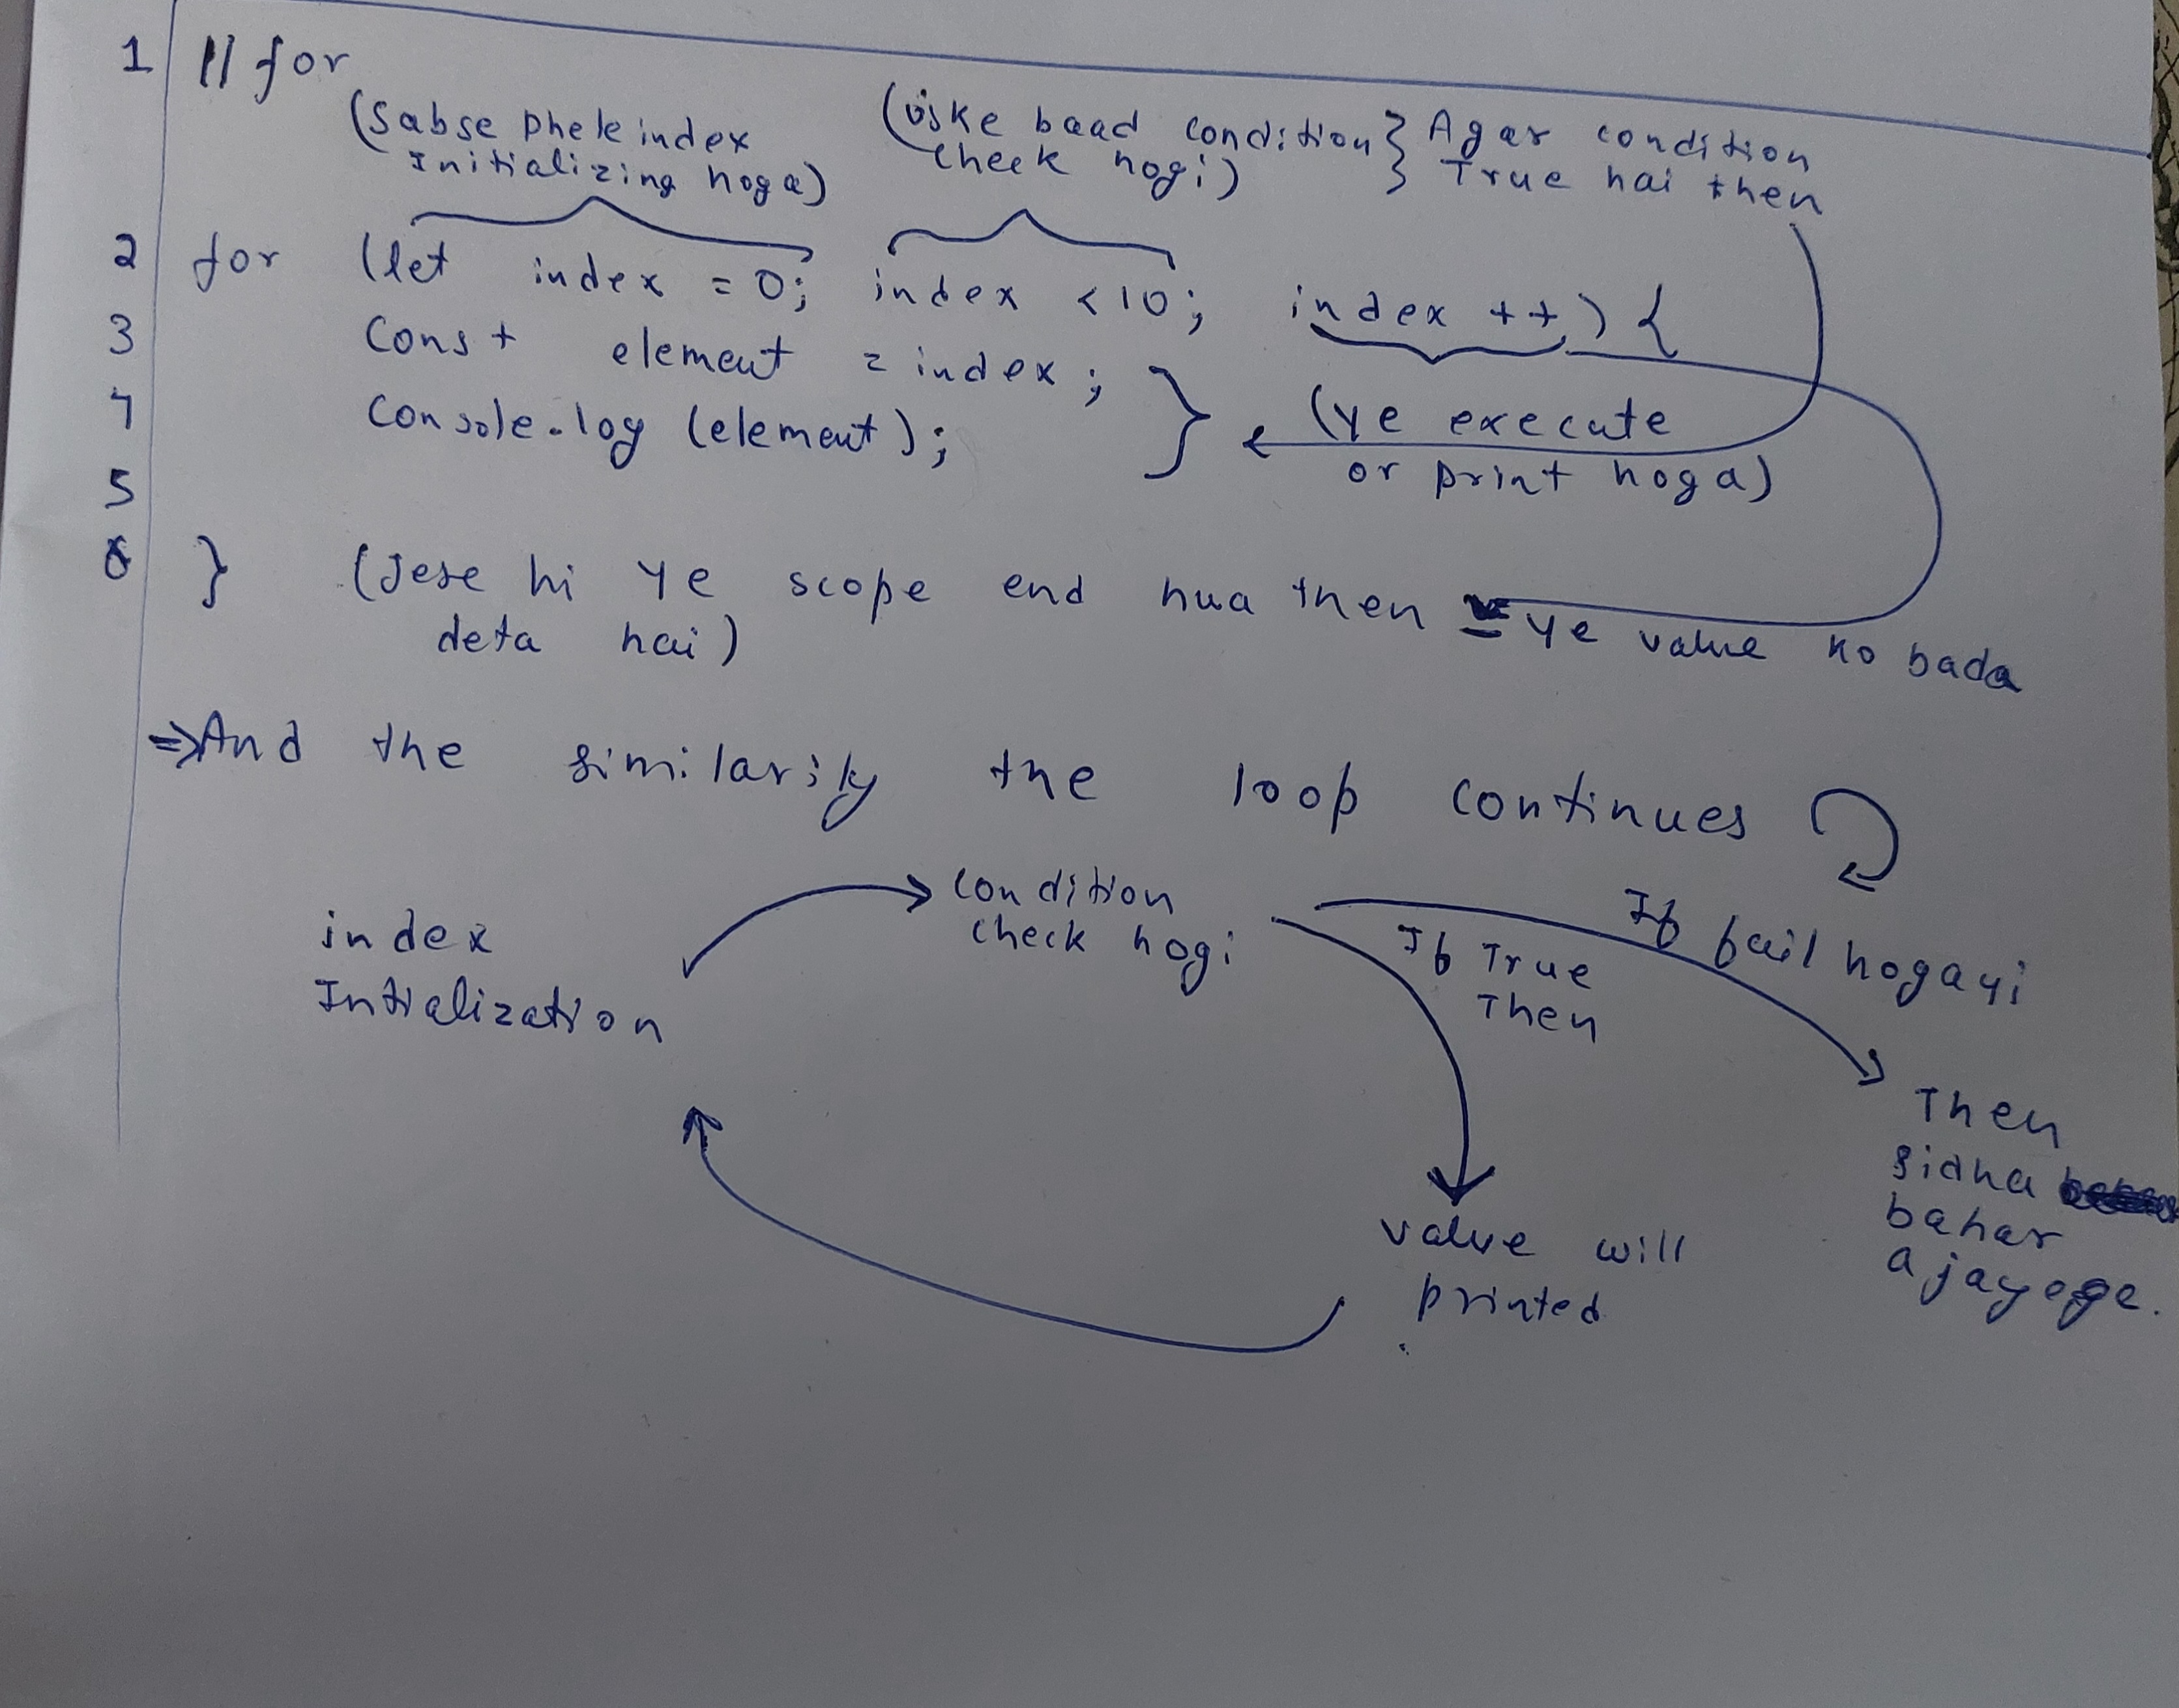 1 // for
(Sabse phele index
Initializing hoga)
(Uske baad condition
check hogi)
} Agar condition
True hai then
2 for (let index = 0; index < 10; index ++) {
3 Const element = index;
4 Console.log (element);
(ye execute
or print hoga)
5
6 } (Jese hi ye scope end hua then ye value ko bada
deta hai)
⇒ And the similarily the loop continues
index
Intialization
Condition
check hogi
If True
Then
If fail hogayi
Then
sidha
bahar
ajayege.
value will
printed